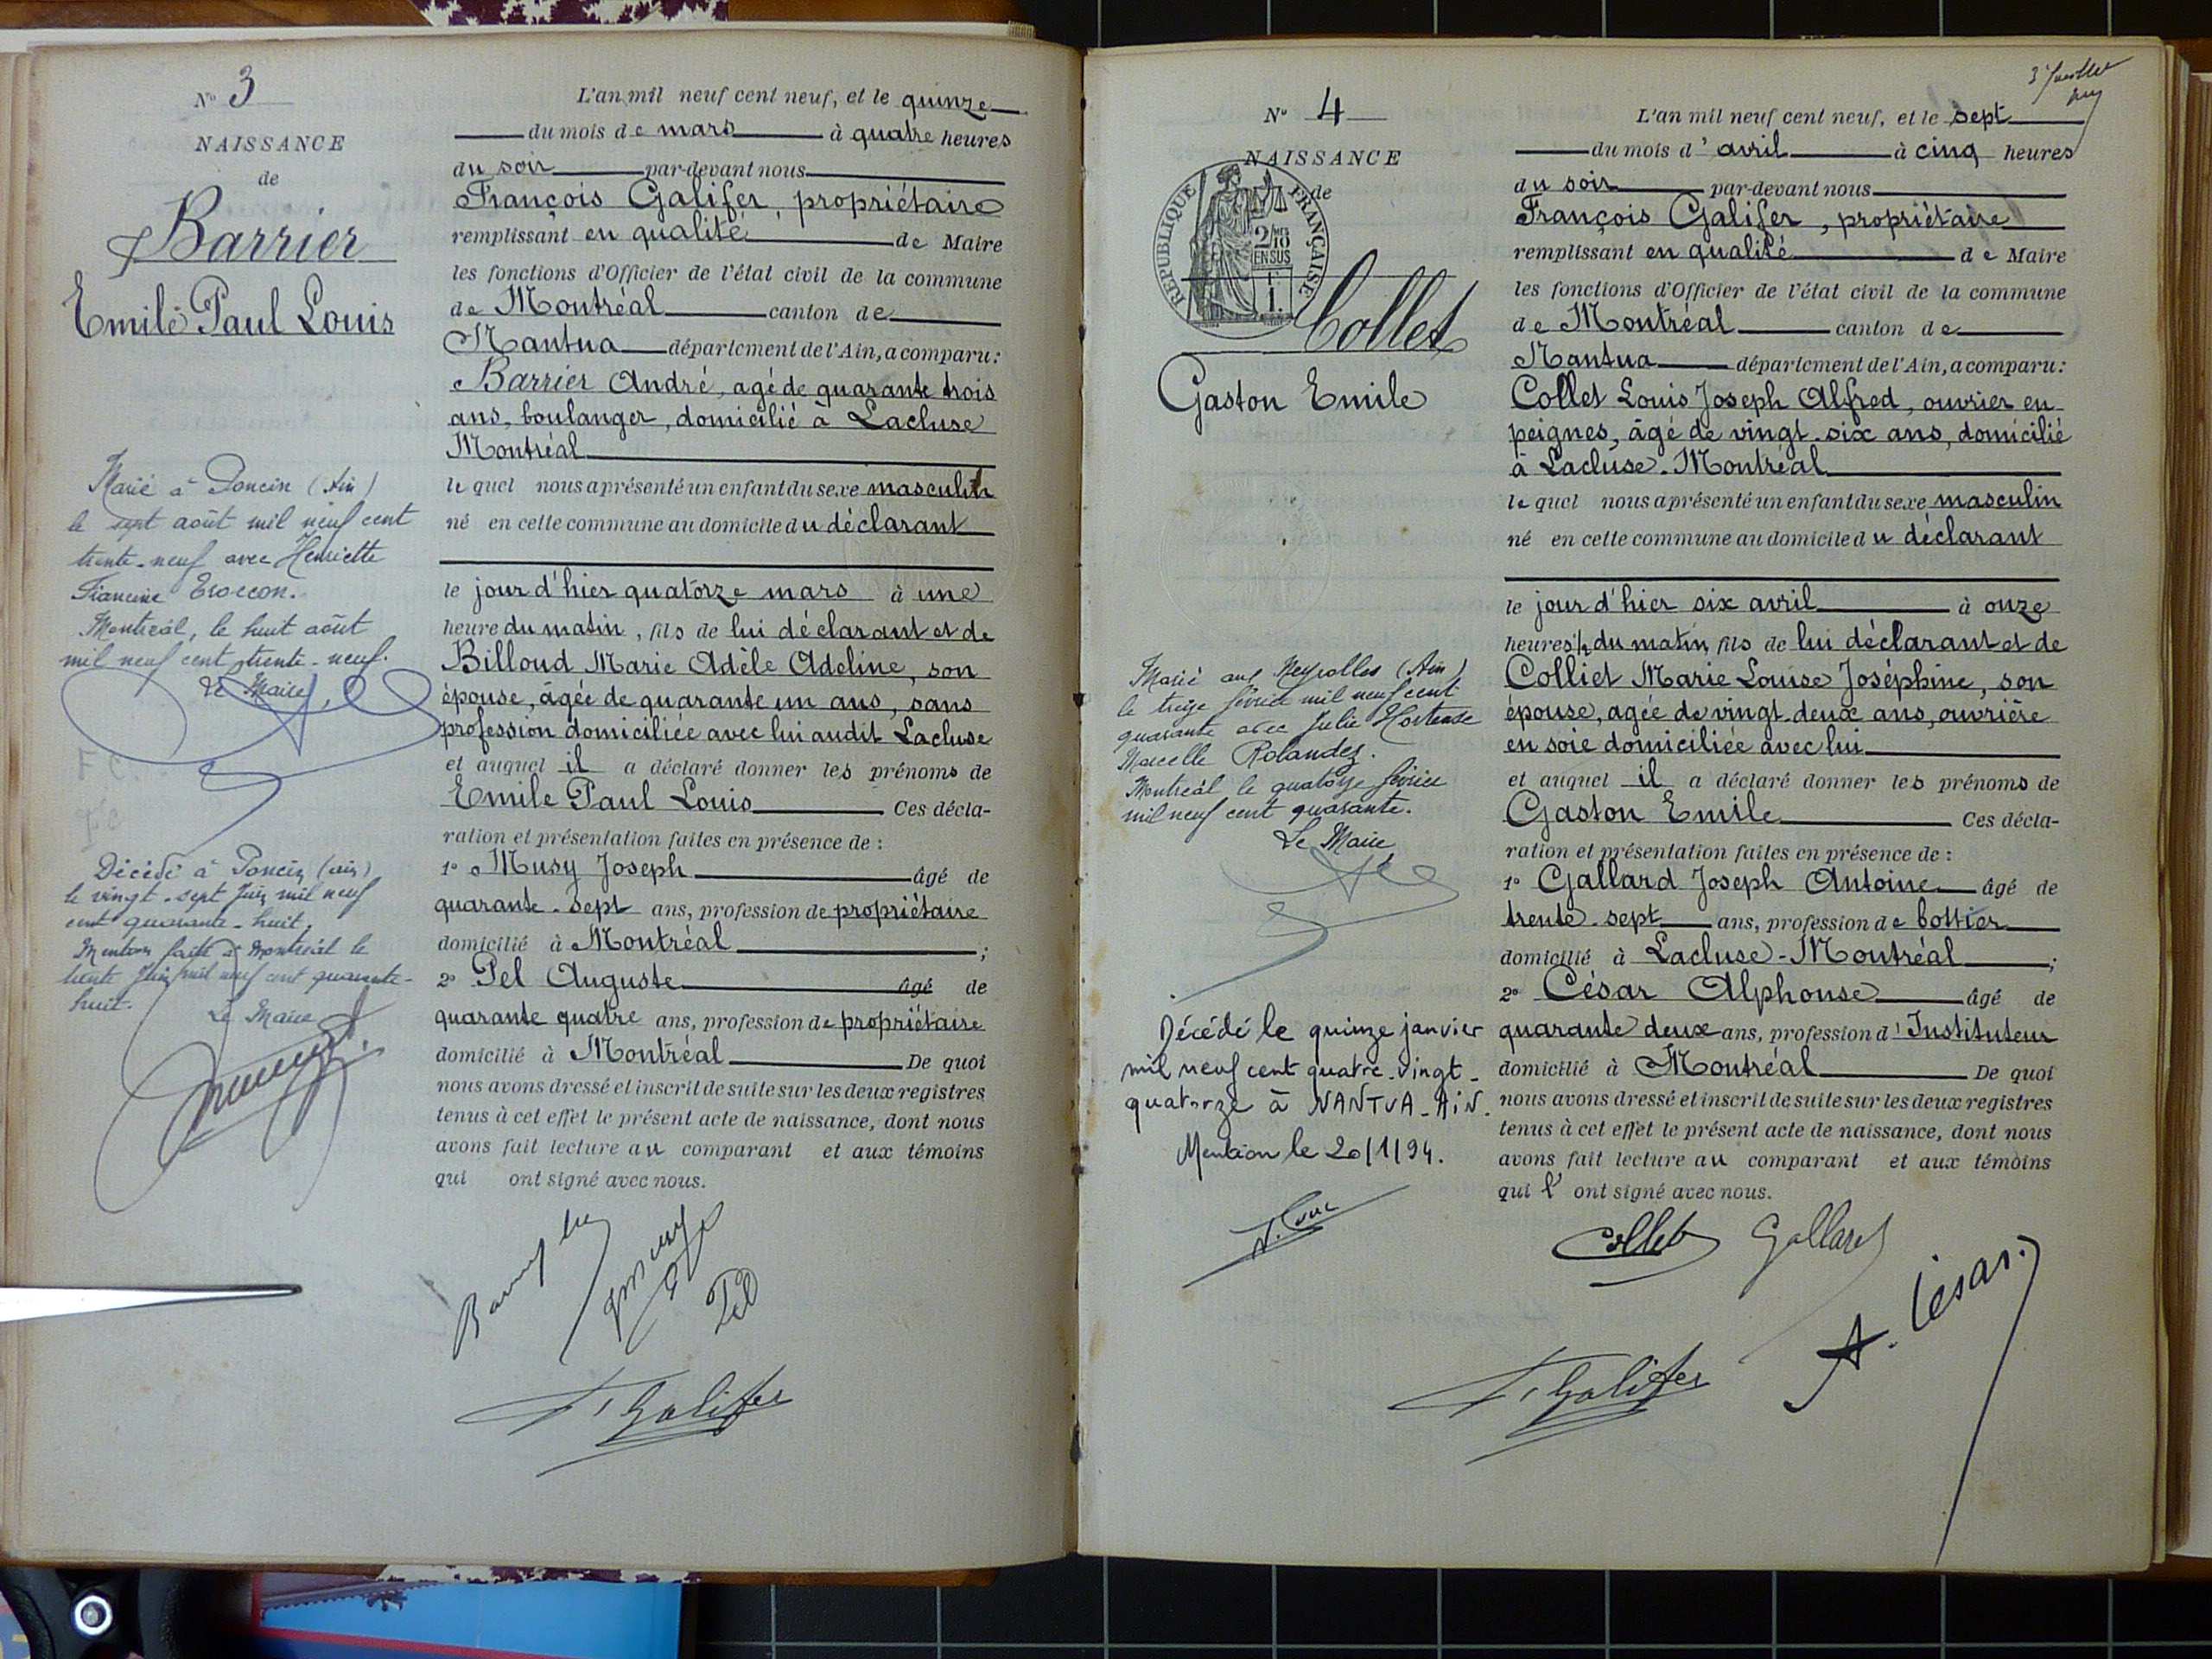 N° 3
NAISSANCE
de
Barrier
Emile Paul Louis
Marié à Poncin (Ain)
le sept août mil neuf cent
trente-neuf avec Henriette
Francine
Montréal, le huit août
mil neuf cent trente-neuf.
Le Maire
Décédé à Poncin (Ain)
le vingt-sept Juin mil neuf
cent quarante-huit.
Mention faite à Montréal le
trente Juin mil neuf cent quarante-
huit.
Le Maire
L'an mil neuf cent neuf, et le quinze
du mois de mars à quatre heures
du soir par-devant nous
François Galifer, propriétaire
remplissant en qualité de Maire
les fonctions d'Officier de l'état civil de la commune
de Montréal canton de
Nantua département de l'Ain, a comparu:
Barrier André, agé de quarante trois
ans, boulanger, domicilié à Lacluse
Montréal
le quel nous a présenté un enfant du sexe masculin
né en cette commune au domicile du déclarant
le jour d'hier quatorze mars à une
heure du matin, fils de lui déclarant et de
Billoud Marie Adèle Adeline, son
épouse, âgée de quarante un ans, sans
profession domiciliée avec lui audit Lacluse
et auquel il a déclaré donner les prénoms de
Emile Paul Louis Ces décla-
ration et présentation faites en présence de :
1° Musy Joseph âgé de
quarante-sept ans, profession de propriétaire
domicilié à Montréal ;
2° Pel Auguste âgé de
quarante quatre ans, profession de propriétaire
domicilié à Montréal De quoi
nous avons dressé et inscrit de suite sur les deux registres
tenus à cet effet le présent acte de naissance, dont nous
avons fait lecture au comparant et aux témoins
qui ont signé avec nous.
Pel
F. Galifer
3 Juillet
N° 4
NAISSANCE
de
RÉPUBLIQUE FRANÇAISE
2/10
EN SUS
1.
Collet
Gaston Emile
Marié aux Neyrolles (Ain)
le treize février mil neuf cent
quarante avec Julie Hortense
Marcelle Rolandez.
Montréal le quatorze février
mil neuf cent quarante.
Le Maire
Décédé le quinze janvier
mil neuf cent quatre-vingt-
quatorze à NANTUA-AiN.
Mention le 20/1/94.
L'an mil neuf cent neuf, et le sept
du mois d'avril à cinq heures
du soir par-devant nous
François Galifer, propriétaire
remplissant en qualité de Maire
les fonctions d'Officier de l'état civil de la commune
de Montréal canton de
Nantua département de l'Ain, a comparu:
Collet Louis Joseph Alfred, ouvrier en
peignes, âgé de vingt-six ans, domicilié
à Lacluse-Montréal
le quel nous a présenté un enfant du sexe masculin
né en cette commune au domicile du déclarant
le jour d'hier six avril à onze
heures ½ du matin, fils de lui déclarant et de
Colliet Marie Louise Joséphine, son
épouse, agée de vingt-deux ans, ouvrière
en soie domiciliée avec lui
et auquel il a déclaré donner les prénoms de
Gaston Emile Ces décla-
ration et présentation faites en présence de :
1° Gallard Joseph Antoine âgé de
trente-sept ans, profession de bottier
domicilié à Lacluse-Montréal ;
2° César Alphonse âgé de
quarante deux ans, profession d'Instituteur
domicilié à Montréal De quoi
nous avons dressé et inscrit de suite sur les deux registres
tenus à cet effet le présent acte de naissance, dont nous
avons fait lecture au comparant et aux témoins
qui l' ont signé avec nous.
Collet Gallard
A. César.
F. Galifer